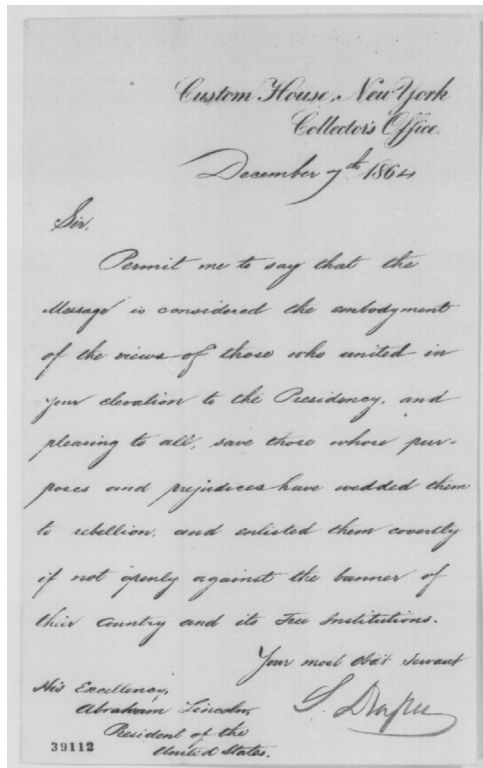 Custom House, New York
Collector's Office.
December 7th 1864
Sir,
Permit me to say that the
Message is considered the embodyment
of the views of those who united in
your elevation to the Presidency, and
pleasing to all, save those whose pur-
poses and prejudices have wedded them
to rebellion, and enlisted them covertly
if not openly against the banner of
their country and its Free Institutions.
Your most obdt servant
S. Draper
His Excellency,
Abraham Lincoln
President of the
United States.
39112